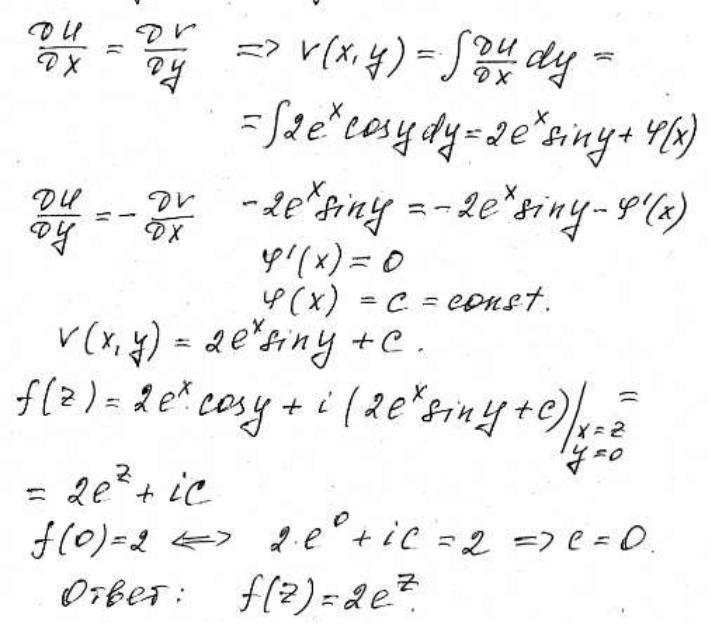 ∂u/∂x = ∂v/∂y => v(x,y) = ∫ ∂u/∂x dy =
= ∫2eˣcosy dy = 2eˣsiny + φ(x)
∂u/∂y = - ∂v/∂x -2eˣsiny = -2eˣsiny - φ'(x)
φ'(x) = 0
φ(x) = c = const.
v(x,y) = 2eˣsiny + c.
f(z) = 2eˣ·cosy + i(2eˣsiny + c)|x=z y=0 =
= 2eᶻ + ic
f(0)=2 <=> 2·e⁰ + ic = 2 => c = 0.
Ответ: f(z) = 2eᶻ.